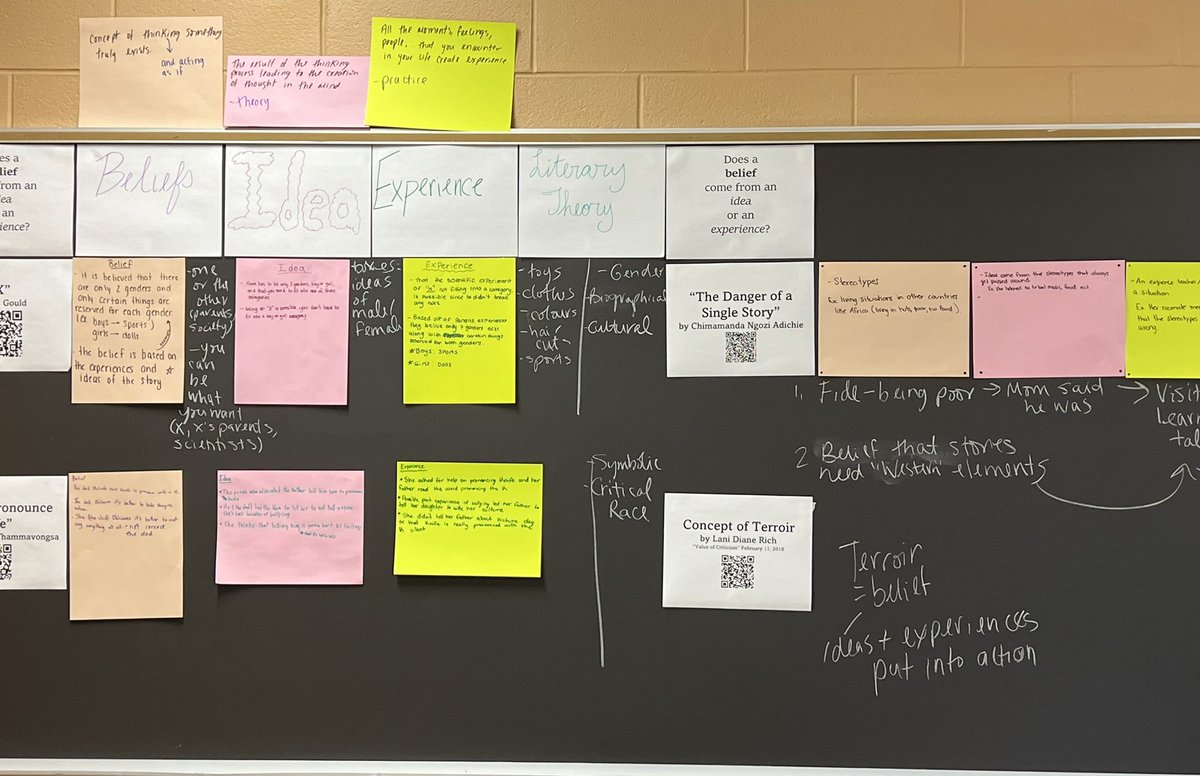 Concept of thinking something
truly exists.
and acting
as if
The result of the thinking
process leading to the creation
of thought in the mind
-theory
All the moments, feelings,
people,.. that you encounter
in your life create experience
-practice
es a
lief
from an
ea
an
ience?
Beliefs
Idea
Experience
Literary
Theory
Does a
belief
come from an
idea
or an
experience?
X"
Gould
Belief
- it is believed that there
are only 2 genders and
only certain things are
reserved for each gender
boys → sports
girls → dolls
- the belief is based on
the experiences and
ideas of the story
-one
or the
other
(parents,
society)
-you
can
be
what
you want
(X, X's parents,
scientists)
Idea
ideas
of
male/
female
Experience
- That the scientific experiment
of "X" not fitting into a category
is possible since to didn't break
any laws
- Based off of Parents experiences
they believe only 2 genders exist
along with certain things
reserved for both genders.
*Boys: Sports
*Girls: Dolls
-toys
clothes
-colours
-hair
cut
-sports
-Gender
-Biographical
-Cultural
"The Danger of a
Single Story"
by Chimamanda Ngozi Adichie
-Stereotypes
Ex. living situations in other countries
like Africa (living in huts, poor, no food)
- Ideas come from the stereotypes that always
get passed around.
1. Fide-being poor → Mom said
he was
→ Visit
Learn
2 Belief that stories
need "Western elements
ronounce
e"
hammavongsa
Belief
the dad
Idea
Experience
• She asked for help on pronouncing Knife and her
father read the word pronouncing the K
• Possible past experience of bullying led her father to
tell her daughter to hide her culture
• She didn't tell her father about picture day
or that Knife is really pronounced with the
K silent
-Symbolic
-Critical
Race
Concept of Terroir
by Lani Diane Rich
"Value of Criticism" February 11, 2018
Terroir
= belief
ideas + experiences
put into action